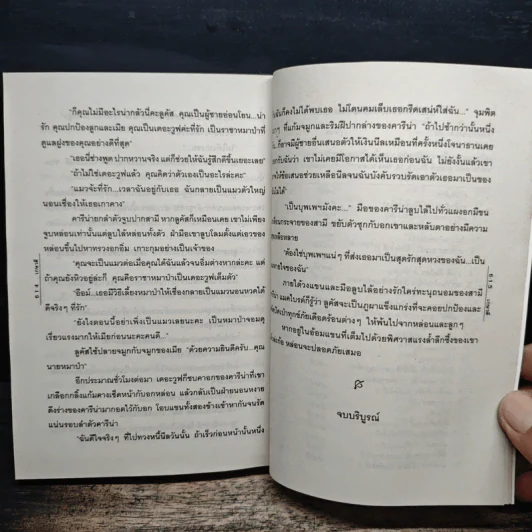 "ก็คุณไม่มีอะไรน่ากลัวนี่คะลูคัส คุณเป็นผู้ชายอ่อนโยน...น่า
รัก คุณปกป้องลูกและเมีย คุณเป็นเดอะวูฟค่ะที่รัก เป็นราชาหมาป่าที่
ดูแลฝูงของคุณอย่างดีที่สุด"
"เธอนี่ช่างพูด ปากหวานจริง แต่ก็ช่วยให้ฉันรู้สึกดีขึ้นเยอะเลย"
"ถ้าไม่ใช่เดอะวูฟแล้ว คุณคิดว่าตัวเองเป็นอะไรล่ะคะ"
"แมวจ้ะที่รัก...เวลาฉันอยู่กับเธอ ฉันกลายเป็นแมวตัวใหญ่
นอนเชื่องให้เธอเกาคาง"
คารีน่ายกลำตัวจูบปากสามี หากลูคัสก็เหมือนเคย เขาไม่เพียง
จูบหล่อนเท่านั้นแต่ลูบไล้หล่อนทั้งตัว ฝ่ามือเขาลูบโลมตั้งแต่เอวของ
หล่อนขึ้นไปหาทรวงอกอิ่ม เกาะกุมอย่างเป็นเจ้าของ
"จะเป็นแมวแต่เมื่อคุณได้ฉันแล้วจนอิ่มต่างหากล่ะคะ แต่
ถ้าคุณยังหิวอยู่ล่ะก็ คุณคือราชาหมาป่าเป็นเดอะวูฟเต็มตัว"
"อืมม์...เธอมีวิธีเลี้ยงหมาป่าให้เชื่องกลายเป็นแมวนอนหวดได้
ดีจริงๆ ที่รัก"
"ยังไงตอนนี้อย่าเพิ่งเป็นแมวเลยนะคะ เป็นหมาป่าจอมดุ
เรี่ยวแรงมากให้เมียก่อนนะคะคนดี..."
ลูคัสใช้ปลายจมูกกับจมูกของเมีย "ด้วยความยินดีครับ...คุณ
นายหมาป่า"
อีกประมาณชั่วโมงต่อมา เดอะวูฟก็ซบคาอกของคารีน่าที่เขา
เกลือกกลิ้งแก้มคางเช็ดหน้ากับอกหล่อน แล้วกลับเป็นฝ่ายนอนหงาย
ดึงร่างของคารีน่ามากอดไว้กับอก โอบแขนทั้งสองข้างเข้าหากันจนรัด
แน่นรอบลำตัวคารีน่า
"ฉันดีใจจริงๆ ที่ไปทวงหนี้นีลวันนั้น ถ้าเร็วก่อนหน้านั้นหนึ่ง
614
ฉันก็คงไม่ได้พบเธอ ไม่โดนคมเล็บเธอกรีดเสน่ห์ใส่ฉัน..." จุมพิต
ที่แก้มจมูกและริมฝีปากล่างของคารีน่า "ถ้าไปช้ากว่านั้นหนึ่ง
ก็อาจมีผู้ชายอื่นเสนอตัวให้เงินนีลเหมือนที่ครั้งหนึ่งโจนาธานเคย
กับฉันว่า เขาไม่เคยมีโอกาสได้เห็นเธอก่อนฉัน ไม่ยังงั้นแล้วเขา
ให้ข้อเสนอช่วยเหลือนีลจนฉันบังคับรวบรัดเอาตัวเธอมาเป็นของ
ได้"
"เป็นบุพเพฯมังคะ..." มือของคารีน่าลูบไล้ไปทั่วแผงอกมีขน
กระจายของสามี ขยับตัวซุกกับอกเขาและหลับตาอย่างมีความ
"ต้องใช่บุพเพฯแน่ๆ ที่ส่งเธอมาเป็นสุดรักสุดหวงของฉัน...เป็น
ใจของฉัน"
ภายใต้วงแขนและมือลูบไล้อย่างรักใคร่ทะนุถนอมของสามี
แมคไบรด์ก็รู้ว่า ลูคัสจะเป็นภูผาแข็งแกร่งที่จะคอยปกป้องและ
ทุกข์ภัยเดือดร้อนต่างๆ ให้พ้นไปจากหล่อนและลูกๆ
หากอยู่ในอ้อมแขนที่เต็มไปด้วยพิศวาสแรงล้ำลึกซึ้งของเขา
หล่อนจะปลอดภัยเสมอ
จบบริบูรณ์
615